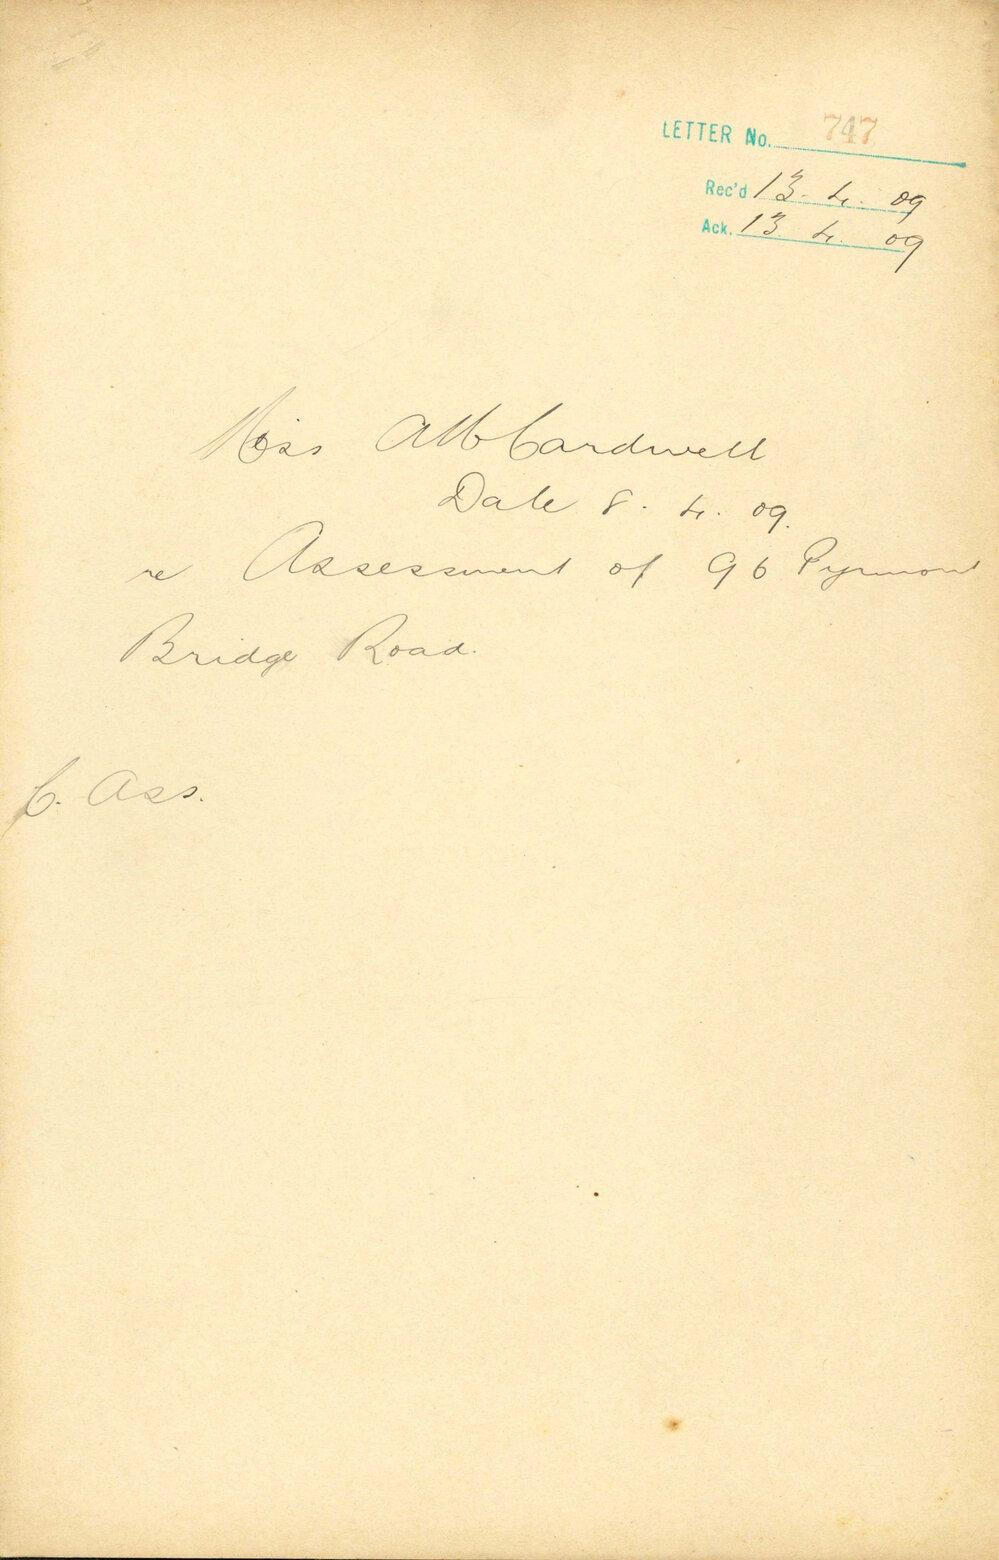 LETTER No. 747
Rec'd 13. 4. 09
Ack. 13. 4. 09
Miss Cardwell
Date 8. 4. 09.
re Assessment of 96 Pyrmont
Bridge Road.
C. Ass.